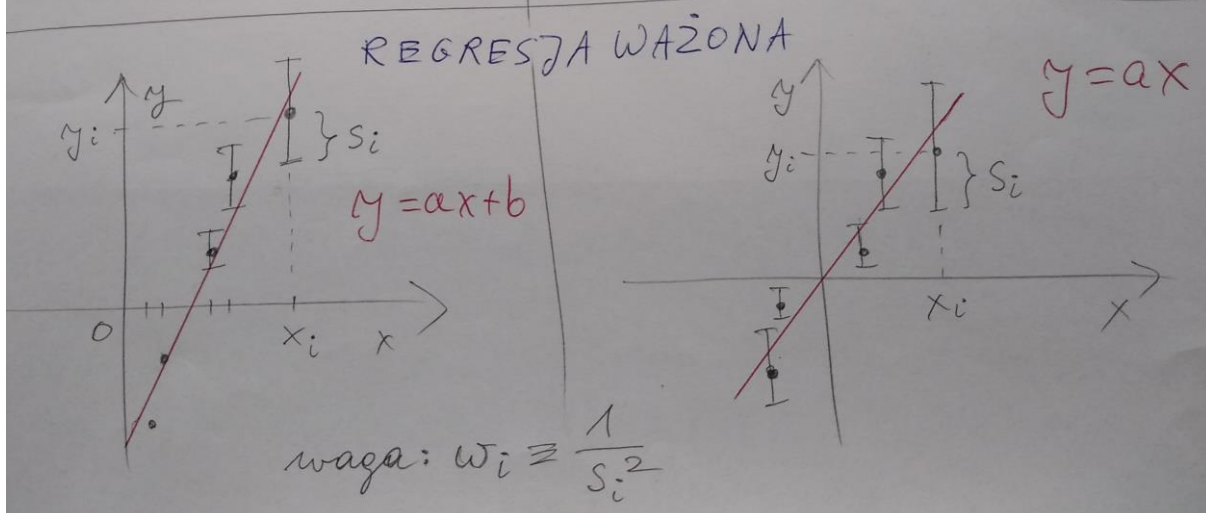 REGRESJA WAŻONA
y
yi
} si
y = ax + b
0
xi
x
y = ax
y
yi
} si
xi
x
waga: wi ≡ 1/si²